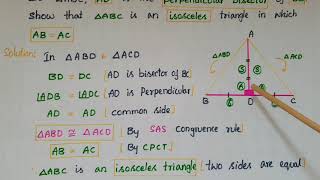 show that △ABC is an isosceles triangle in which
AB = AC
Solution: In △ABD & △ACD
BD = DC [AD is bisector of BC
∠ADB = ∠ADC [AD is Perpendicular
AD = AD [common side
△ABD ≅ △ACD [By SAS congruence rule]
AB = AC [By CPCT]
△ABC is an isosceles triangle [two sides are equal]
A
△ABD
△ACD
B
D
C